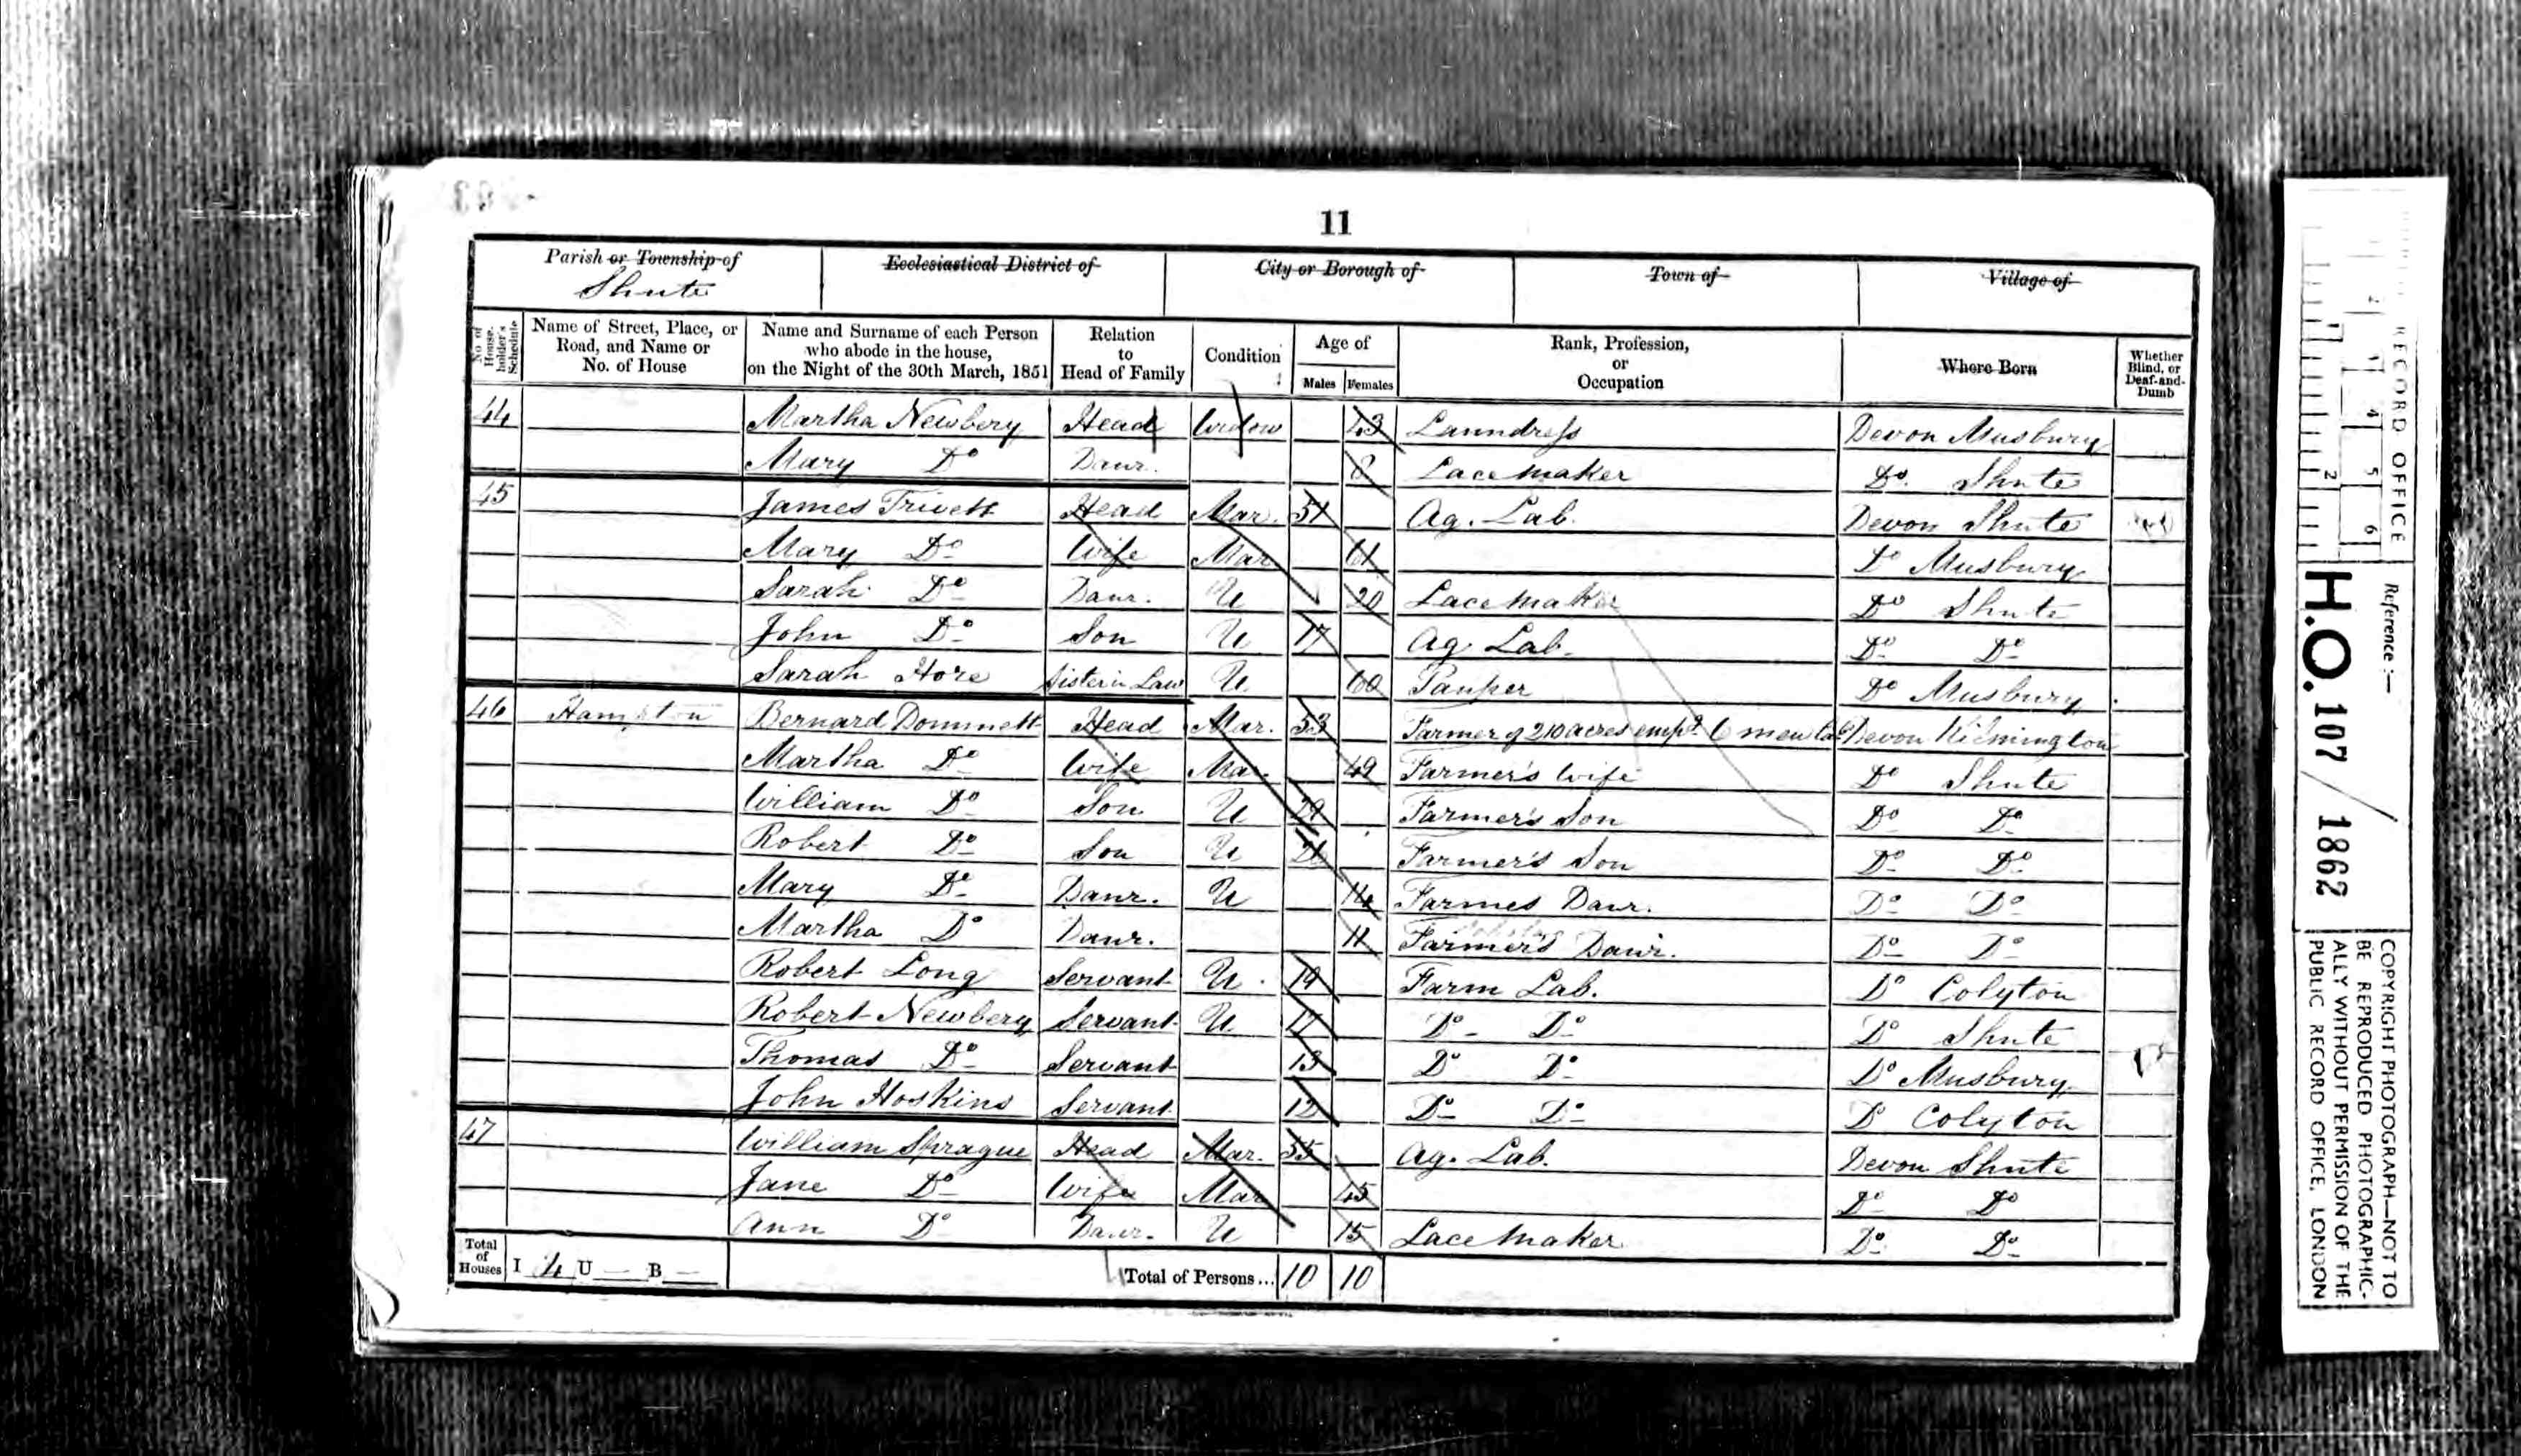 11
Parish or Township of Ecclesiastical District of City or Borough of Town of Village of
Shute
No of House-holder's Schedule Name of Street, Place, or Road, and Name or No. of House Name and Surname of each Person who abode in the house, on the Night of the 30th March, 1851 Relation to Head of Family Condition Age of Males Females Rank, Profession, or Occupation Where Born Whether Blind, or Deaf-and-Dumb
44 Martha Newbery Head Widow 43 Laundress Devon Musbury
Mary Do Daur. 8 Lace maker Do Shute
45 James Trivett Head Mar. 51 Ag. Lab. Devon Shute
Mary Do Wife Mar 61 Do Musbury
Sarah Do Daur. U 20 Lace maker Do Shute
John Do Son U 17 Ag. Lab. Do Do
Sarah Hore Sister in Law U 60 Pauper Do Musbury
46 Hampton Bernard Dommett Head Mar. 53 Farmer of 210 acres empg 6 men Devon Kilmington
Martha Do Wife Mar. 49 Farmer's Wife Do Shute
William Do Son U 29 Farmer's Son Do Do
Robert Do Son U Farmer's Son Do Do
Mary Do Daur. U 14 Farmes Daur. Do Do
Martha Do Daur. 11 Farmer's Daur. Do Do
Robert Long Servant U 19 Farm Lab. Do Colyton
Robert Newbery Servant U Do Do Do Shute
Thomas Do Servant 13 Do Do Do Musbury
John Hoskins Servant 12 Do Do Do Colyton
47 William Sprague Head Mar. 55 Ag. Lab. Devon Shute
Jane Do Wife Mar 45 Do Do
Ann Do Daur. U 15 Lace maker Do Do
Total of Houses I 4 U — B — Total of Persons... 10 10
RECORD OFFICE
1 2 4 5 6
Reference :—
H.O. 107 / 1862
COPYRIGHT PHOTOGRAPH—NOT TO
BE REPRODUCED PHOTOGRAPHIC-
ALLY WITHOUT PERMISSION OF THE
PUBLIC RECORD OFFICE, LONDON